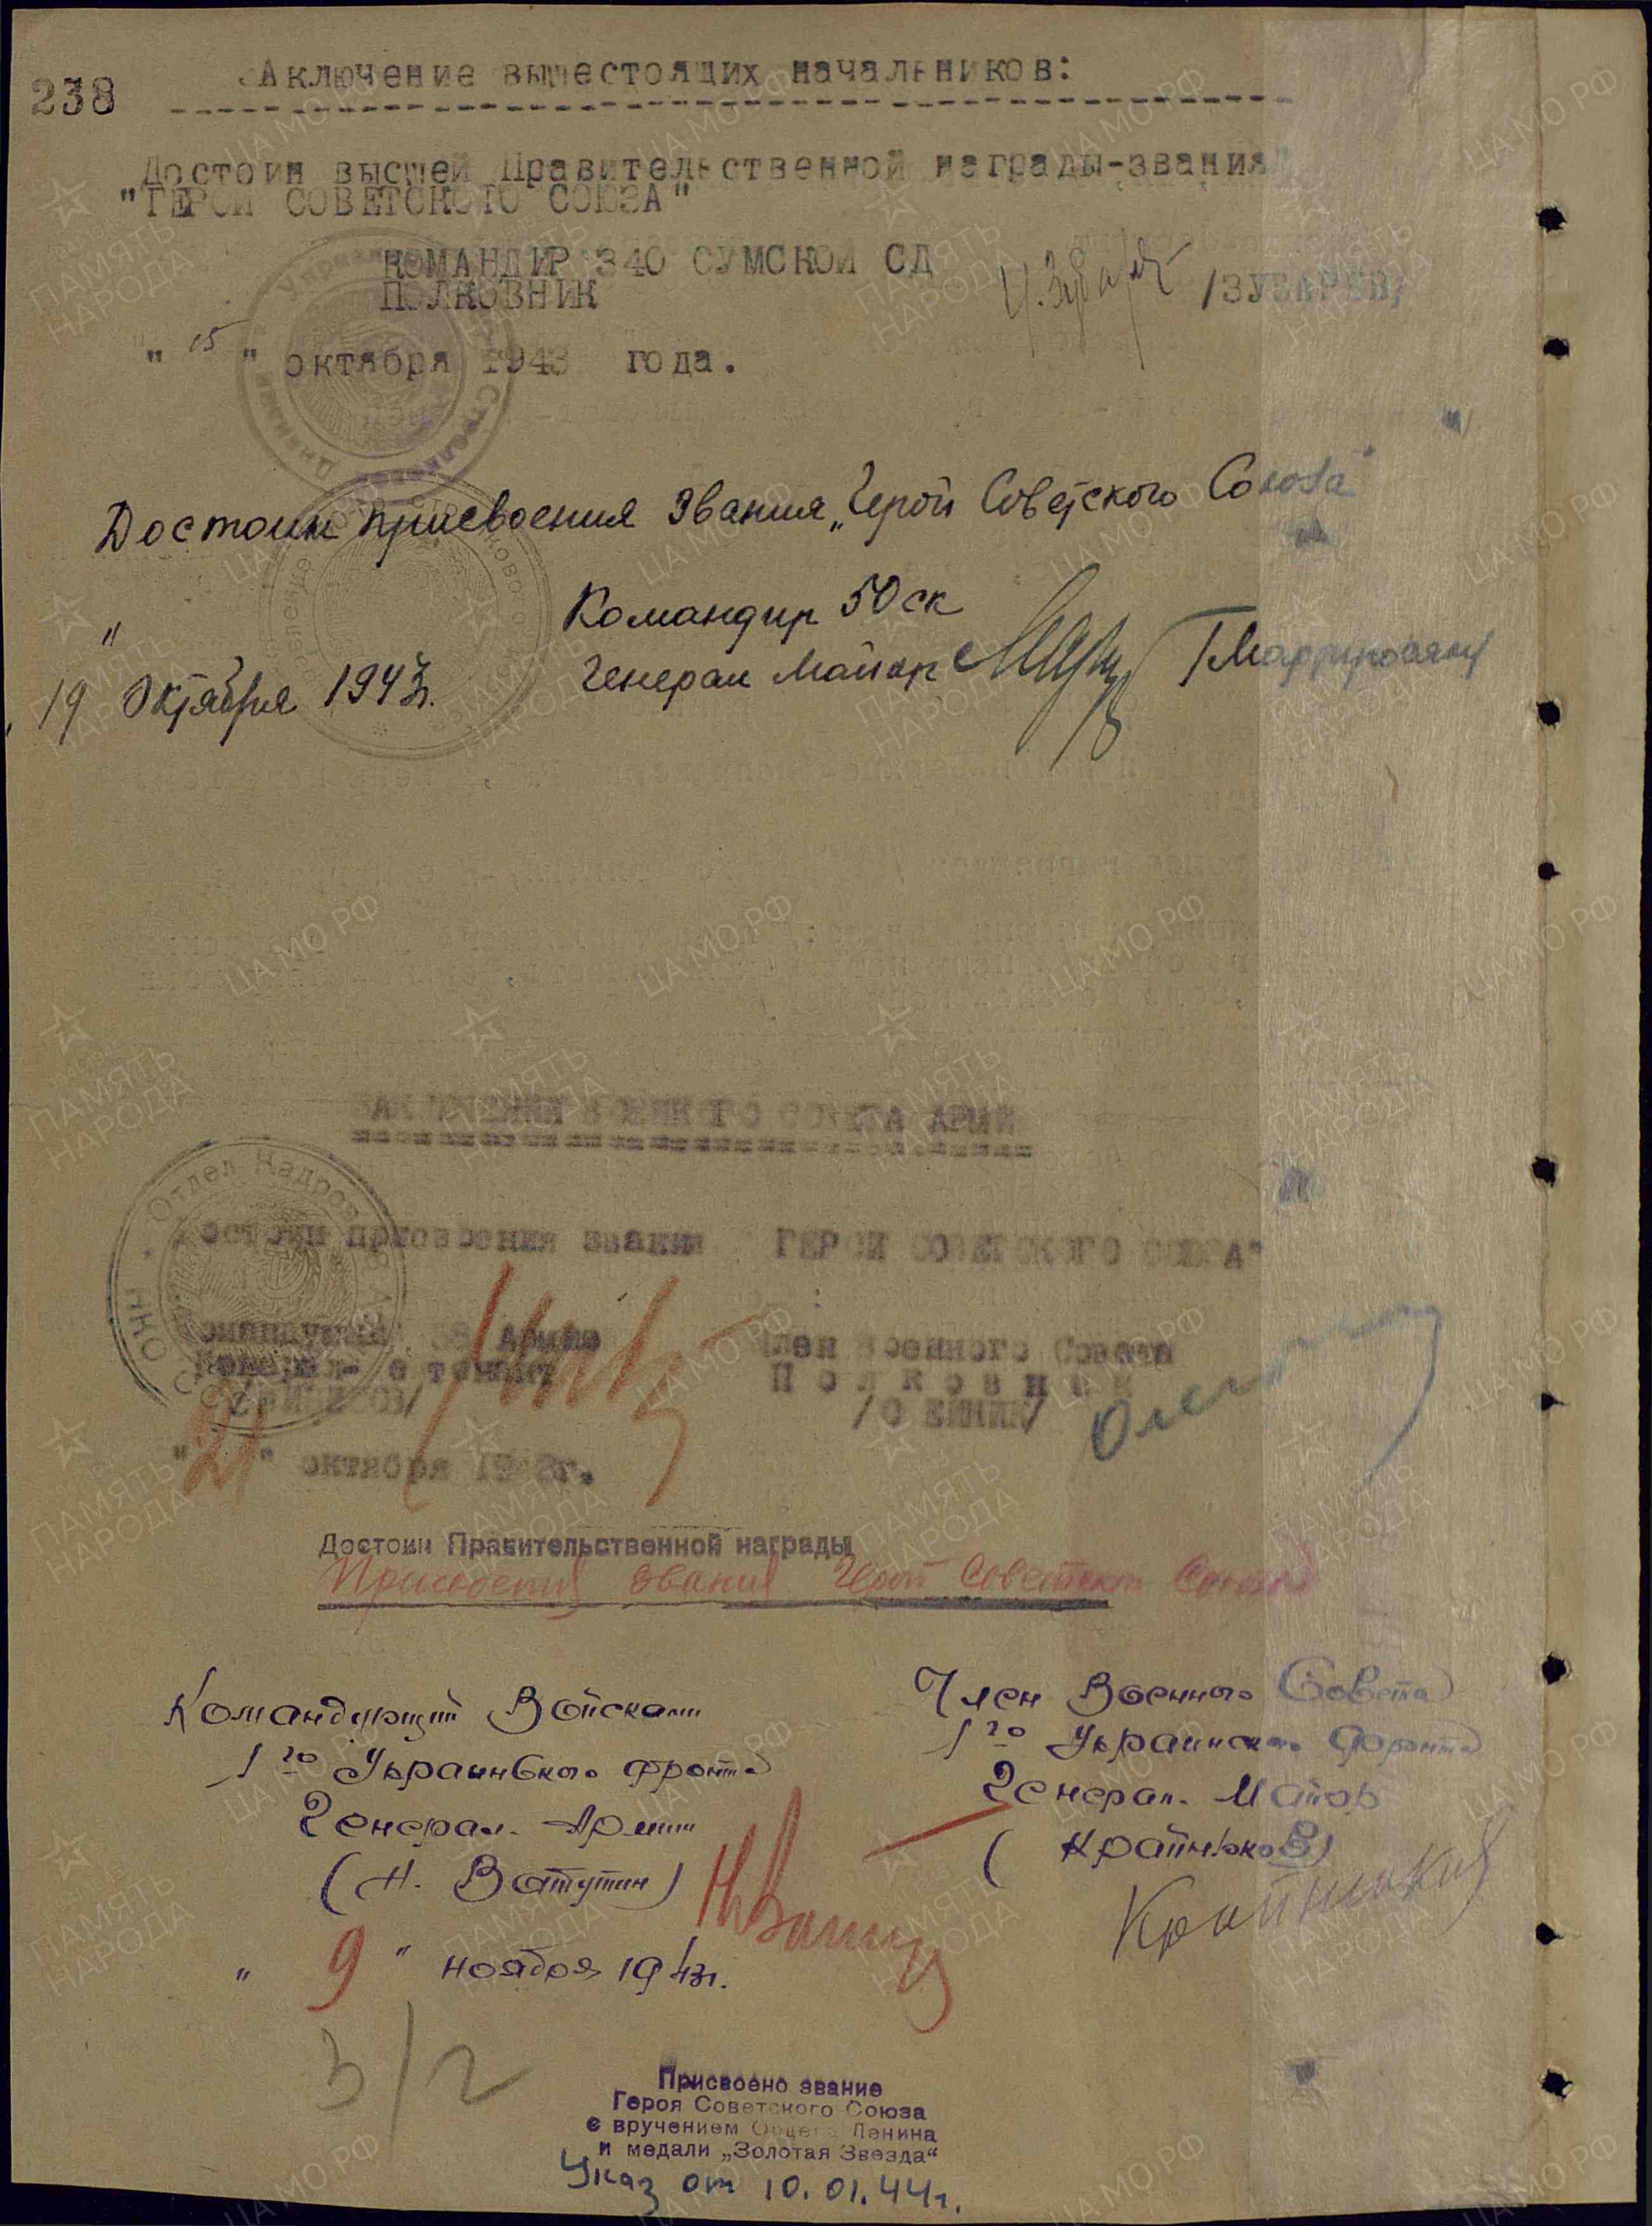 238
Заключение вышестоящих начальников:
Достоин высшей Правительственной награды-звания
"ГЕРОЙ СОВЕТСКОГО СОЮЗА"
КОМАНДИР 340 СУМСКОЙ СД
ПОЛКОВНИК /ЗУБАРЕВ/
"15" октября 1943 года.
Достоин присвоения звания „Герой Советского Союза"
Командир 50 ск
Генерал Майор /Мартиросян/
" 19 Октября 1943г.
ЗАКЛЮЧЕНИЕ ВОЕННОГО СОВЕТА АРМИИ
Достоин присвоения звания ГЕРОЙ СОВЕТСКОГО СОЮЗА"
Командующий 38 Армией Член Военного Совета
Генерал- Полковник
"21" октября 1943г.
Отдел Кадров
НКО СССР
Достоин Правительственной награды
Присвоения звания Герой Советского Союза
Командующий Войсками
1го Украинского фронта
Генерал Армии
(Н. Ватутин)
"9" ноября 1943г.
Член Военного Совета
1го Украинского Фронта
Генерал Майор
(Крайнюков)
3/2
Присвоено звание
Героя Советского Союза
с вручением Ордена Ленина
и медали „Золотая Звезда“
Указ от 10.01.44г.
ПАМЯТЬ НАРОДА
ЦА МО РФ